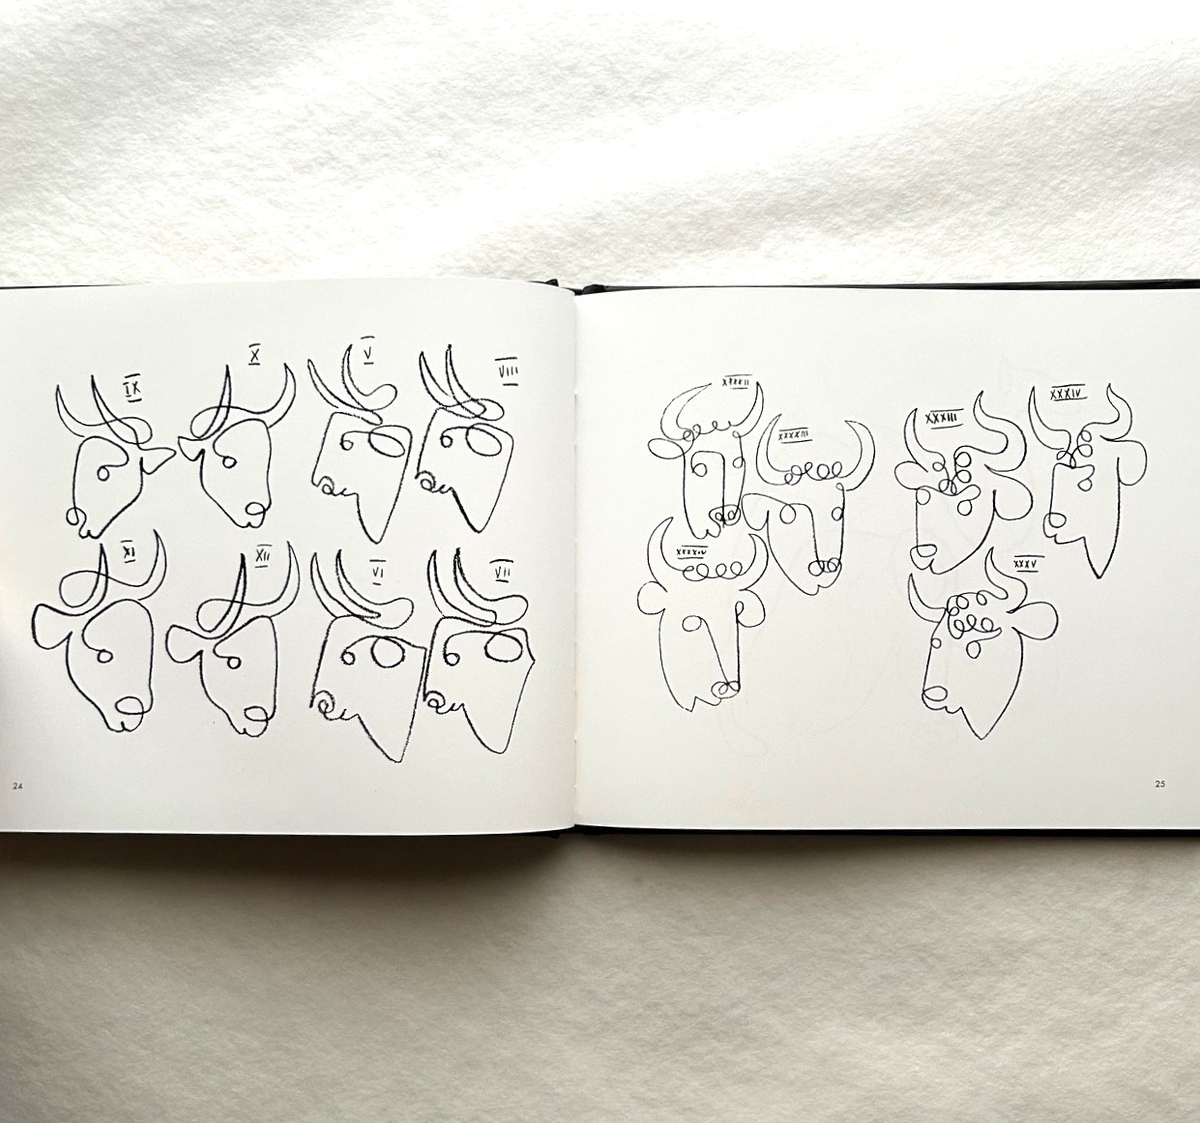 IX
X
V
VIIII
XI
XII
VI
VII
24
XXXXII
XXXXIII
XXXXIV
XXXIII
XXXIV
XXXV
25